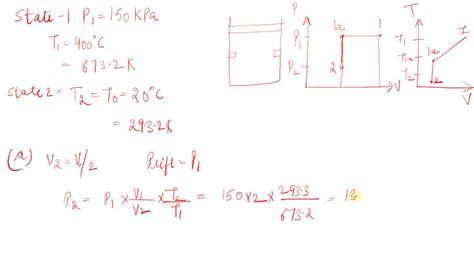 State-1 P₁ = 150 KPa
T₁ = 400°C
= 673.2 K
State 2 = T₂ = T₀ = 20°C
= 293.2K
P
P₁
P₂
1a
1
2
V
T
T₁
T₁a
T₂
1a
1
2
V
(a) V₂ = V₁/2 Plift = P₁
P₂ = P₁ × V₁/V₂ × T₂/T₁ = 150 × 2 × 293.3/673.2 = 13